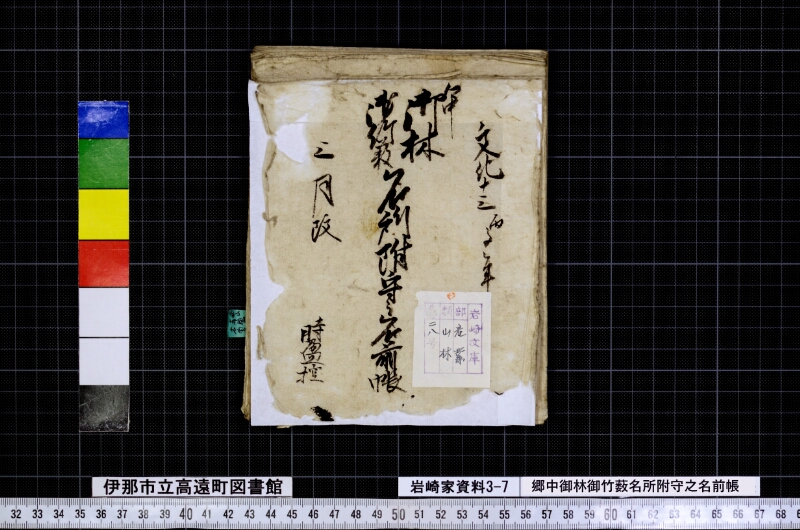 文化十三丙子年
郷中
御林
御竹薮
名所附守之名前帳
三月改
岩崎文庫
部 産業
山林
伊那市立高遠町図書館
岩崎家資料3-7
郷中御林御竹薮名所附守之名前帳
32 33 34 35 36 37 38 39 40 41 42 43 44 45 46 47 48 49 50 51 52 53 54 55 56 57 58 59 60 61 62 63 64 65 66 67 68